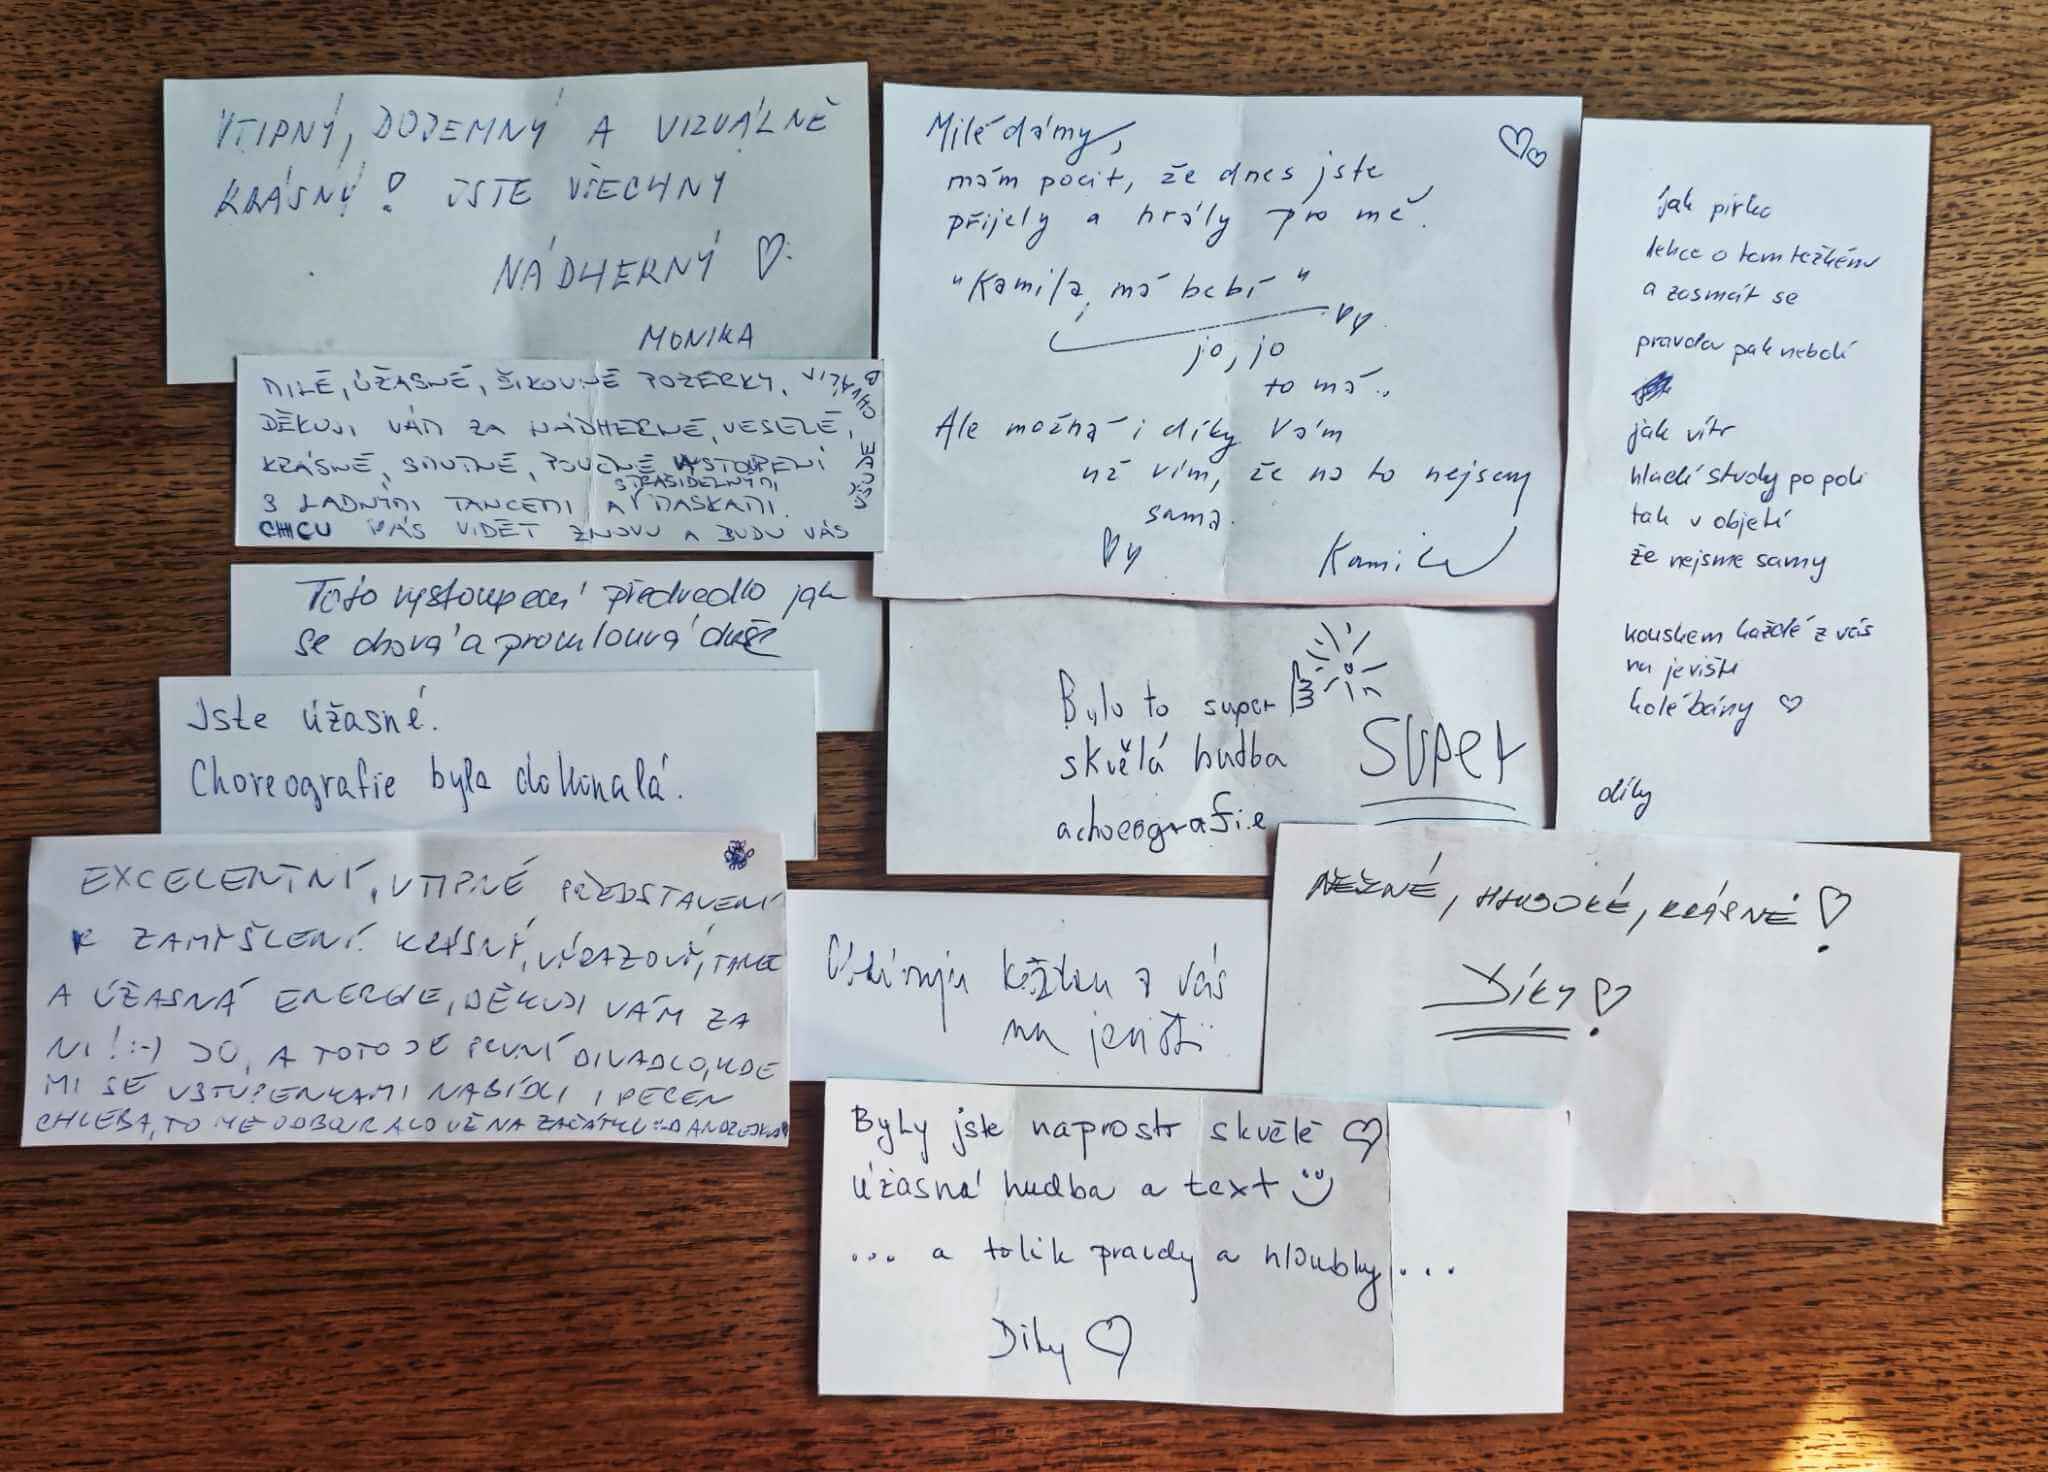 VTIPNÝ, DOJEMNÝ A VIZUÁLNĚ
KRÁSNÝ! JSTE VŠECHNY
NÁDHERNÝ ♡
MONIKA
MILÉ, ÚŽASNÉ, ŠIKOVNÉ POZÉRKY,
DĚKUJI VÁM ZA NÁDHERNÉ, VESELÉ,
KRÁSNÉ, SMUTNÉ, POUČNÉ VYSTOUPENÍ
S LADNÝMI TANCEMI A STRAŠIDELNÝMI MASKAMI.
CHCU VÁS VIDĚT ZNOVU A BUDU VÁS
VŠUDE
CHVÁLIT
Toto vystoupení předvedlo jak
se chová a promlouvá duše
Jste úžasné.
Choreografie byla dokonalá.
EXCELENTNÍ, VTIPNÉ PŘEDSTAVENÍ
K ZAMYŠLENÍ. KRÁSNÝ, VÝRAZOVÝ, TANEC
A ÚŽASNÁ ENERGIE, DĚKUJI VÁM ZA
NI! :-) JO, A TOTO JE PRVNÍ DIVADLO, KDE
MI SE VSTUPENKAMI NABÍDLI I PECEN
CHLEBA, TO MĚ ODBOURALO UŽ NA ZAČÁTKU
Milé dámy,
mám pocit, že dnes jste
přijely a hrály pro mě.
"Kamila má bebí"
jo, jo
to má..
Ale možná i díky Vám
už vím, že na to nejsem
sama.
Kamila
Bylo to super
skvělá hudba
a choeografie
SUPER
jak pírko
lehce o tom težkému
a zasmát se
pravda pak nebolí
jak vítr
hladí study po poli
tak v objetí
že nejsme samy
kouskem každé z vás
na jevišti
kolébány ♡
díky
NĚŽNÉ, HLUBOKÉ, KRÁSNÉ!
Díky!
každou z vás
na jevišti
Byly jste naprostr skvělé ♡
úžasná hudba a text
... a tolik pravdy a hloubky...
Díky ♡